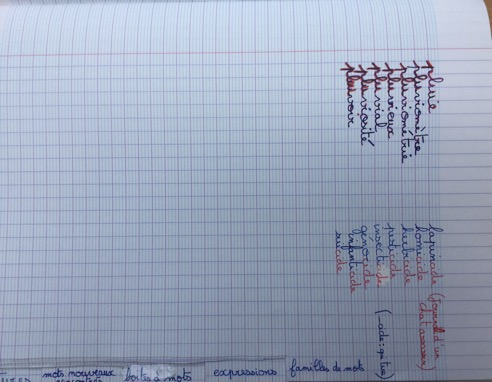 pluie
pluviomètre
pluviométrie
pluvieux
pluvial
pluviosité
pleuvoir
lapinade (Journal d'un chat assassin)
homicide
herbicide
pesticide
insecticide
génocide
infanticide
suicide
mots nouveaux
boîtes à mots
expressions
familles de mots